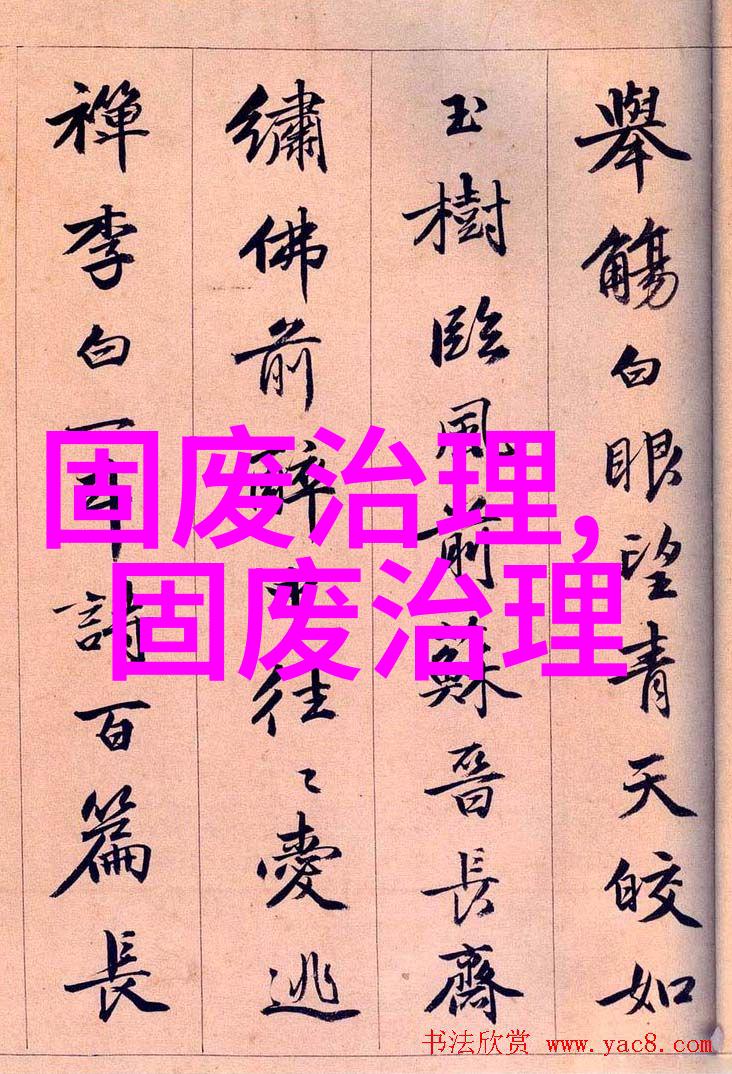 舉觴白眼望青天皎如
玉樹臨風前蘇晉長齋
繡佛前醉中往〻愛逃
禪李白一斗詩百篇長
固废治理,
固废治理
书法欣赏 www.yac8.com